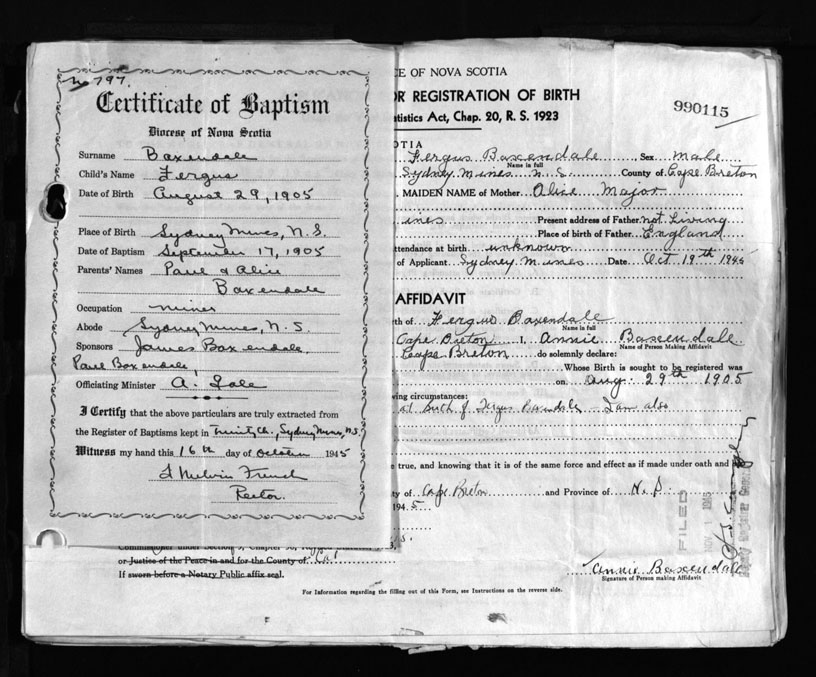 No 797.
Certificate of Baptism
Diocese of Nova Scotia
Surname Baxendale
Child's Name Fergus
Date of Birth August 29, 1905
Place of Birth Sydney Mines, N.S.
Date of Baptism September 17, 1905
Parents' Names Paul & Alice
Baxendale
Occupation miner
Abode Sydney Mines, N.S.
Sponsors James Baxendale,
Paul Baxendale,
Officiating Minister A.
I Certify that the above particulars are truly extracted from
the Register of Baptisms kept in Trinity Ch., Sydney Mines, N.S.
Witness my hand this 16th day of October 1945
Melvin French
Rector.
CE OF NOVA SCOTIA
OR REGISTRATION OF BIRTH
990115
tatistics Act, Chap. 20, R. S. 1923
OTIA
Fergus Baxendale Sex Male
Name in full
Sydney Mines N.S. County of Cape Breton
MAIDEN NAME of Mother Alice Major
ines Present address of Father not Living
Place of birth of Father England
ttendance at birth unknown
of Applicant Sydney Mines Date Oct 19th 1945
AFFIDAVIT
rth of Fergus Baxendale
Name in full
Cape Breton I, Annie Baxendale
Name of Person Making Affidavit
Cape Breton do solemnly declare:
Whose Birth is sought to be registered was
on Aug: 29th 1905
ving circumstances:
at birth of Fergus Baxendale I am also
e true, and knowing that it is of the same force and effect as if made under oath and
ty of Cape Breton and Province of N.S.
194 5
S.
FILED
NOV 1 1945
Commissioner under Section 9, Chapter
or Justice of the Peace in and for the County of
If sworn before a Notary Public affix seal.
Annie Baxendale
Signature of Person making Affidavit
For Information regarding the filling out of this Form, see Instructions on the reverse side.